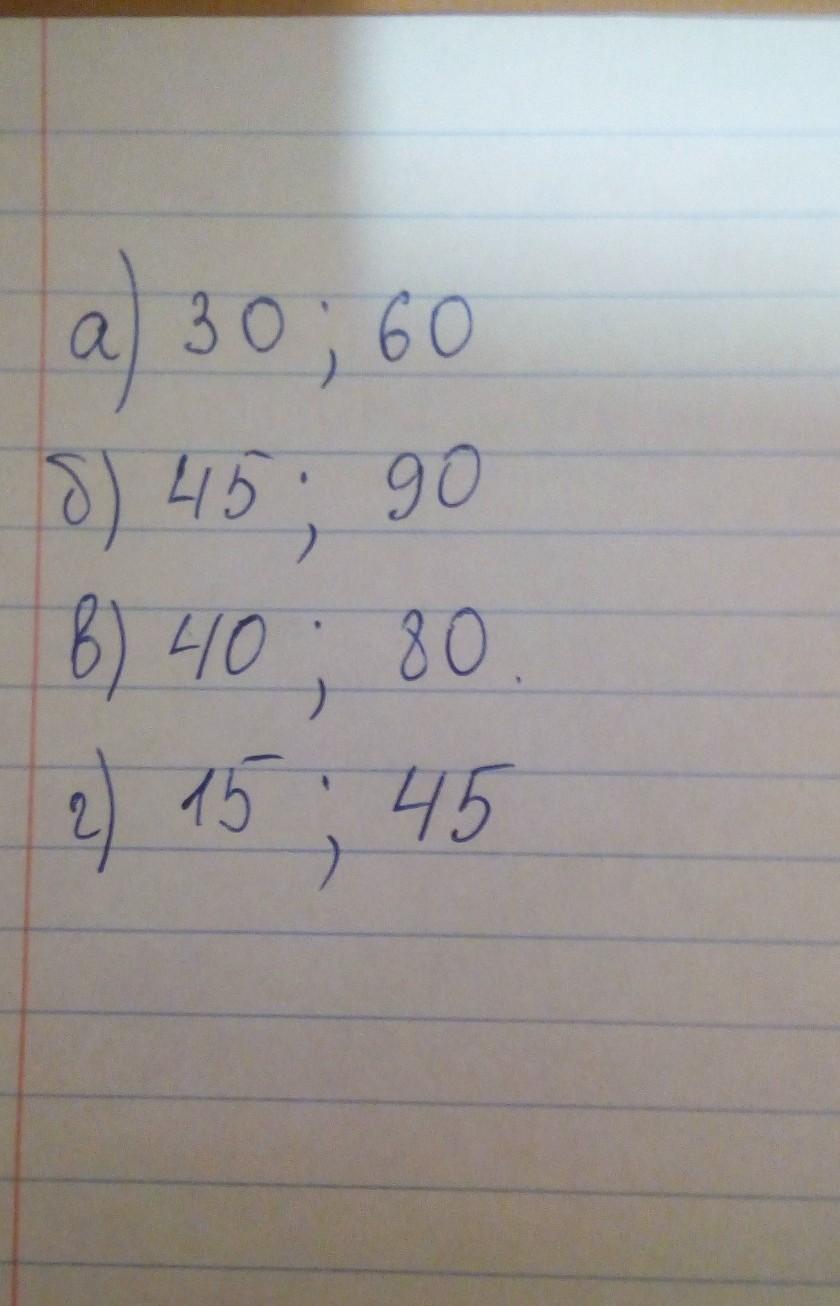 а) 30 ; 60
б) 45 ; 90
в) 40 ; 80.
г) 15 ; 45